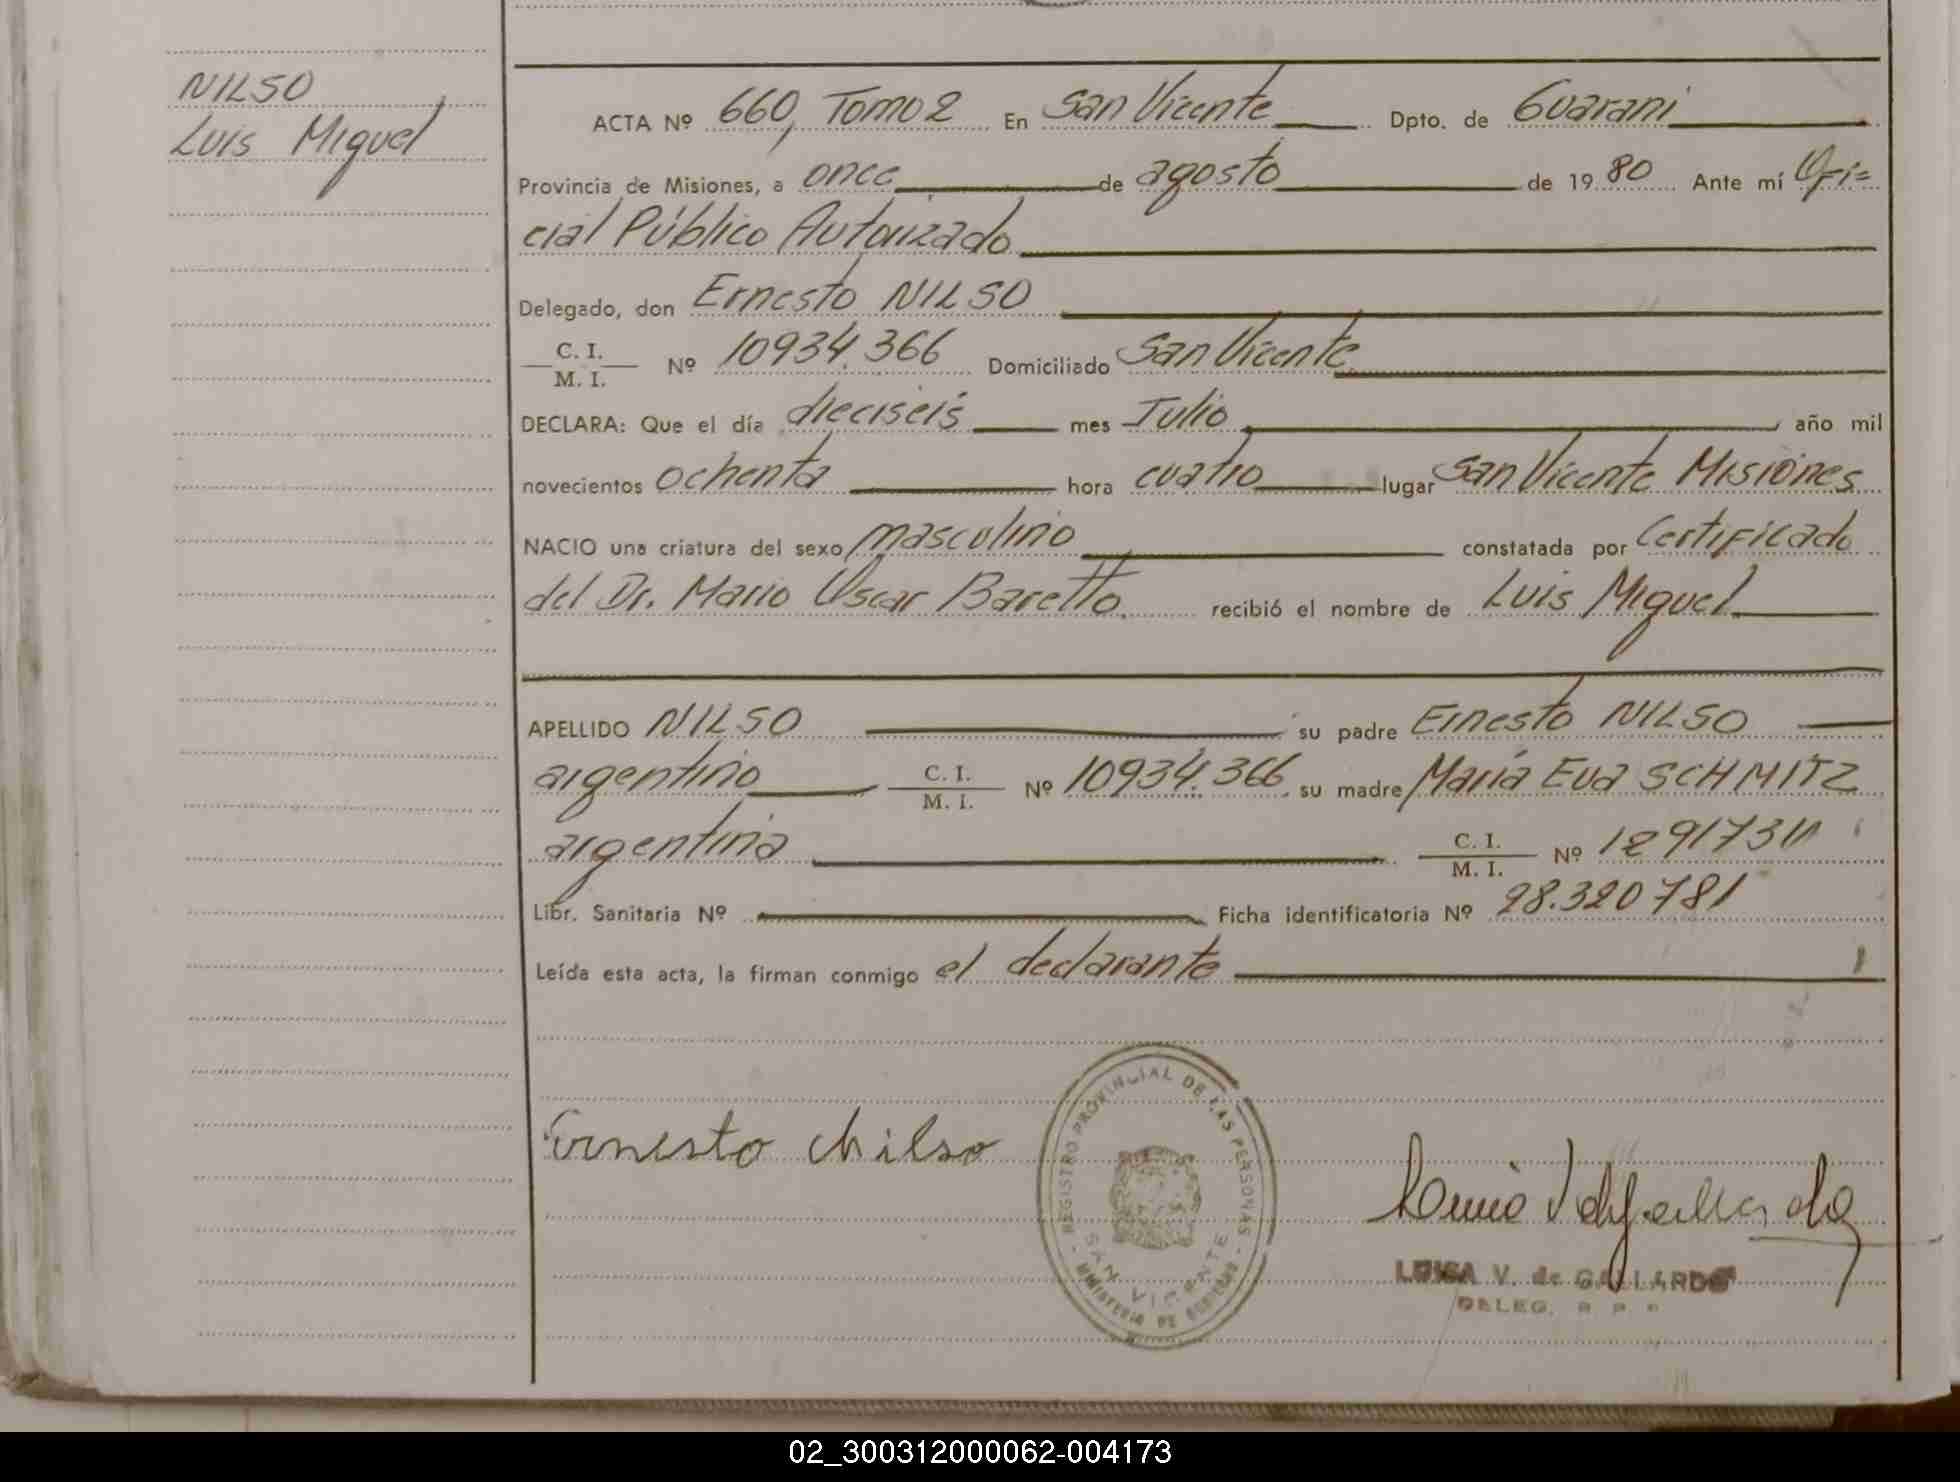 NILSO
Luis Miguel
ACTA Nº 660, Tomo 2 En San Vicente Dpto. de Guarani
Provincia de Misiones, a once de agosto de 1980 Ante mí Ofi=
cial Público Autorizado
Delegado, don Ernesto NILSO
C. I.
M. I. Nº 10934.366 Domiciliado San Vicente
DECLARA: Que el día dieciseis mes Julio año mil
novecientos ochenta hora cuatro lugar San Vicente Misiones
NACIO una criatura del sexo masculino constatada por Certificado
del Dr. Mario Oscar Baretto. recibió el nombre de Luis Miguel
APELLIDO NILSO su padre Ernesto NILSO
argentino C. I.
M. I. Nº 10934.366 su madre María Eva SCHMITZ
argentina C. I.
M. I. Nº
Libr. Sanitaria Nº Ficha identificatoria Nº 28.320781
Leída esta acta, la firman conmigo el declarante
Ernesto chilso
REGISTRO PROVINCIAL DE LAS PERSONAS
SAN VICENTE
MINISTERIO DE GOBIERNO
LUISA V. de GALLARDO
DELEG. R. P. P.
02_300312000062-004173